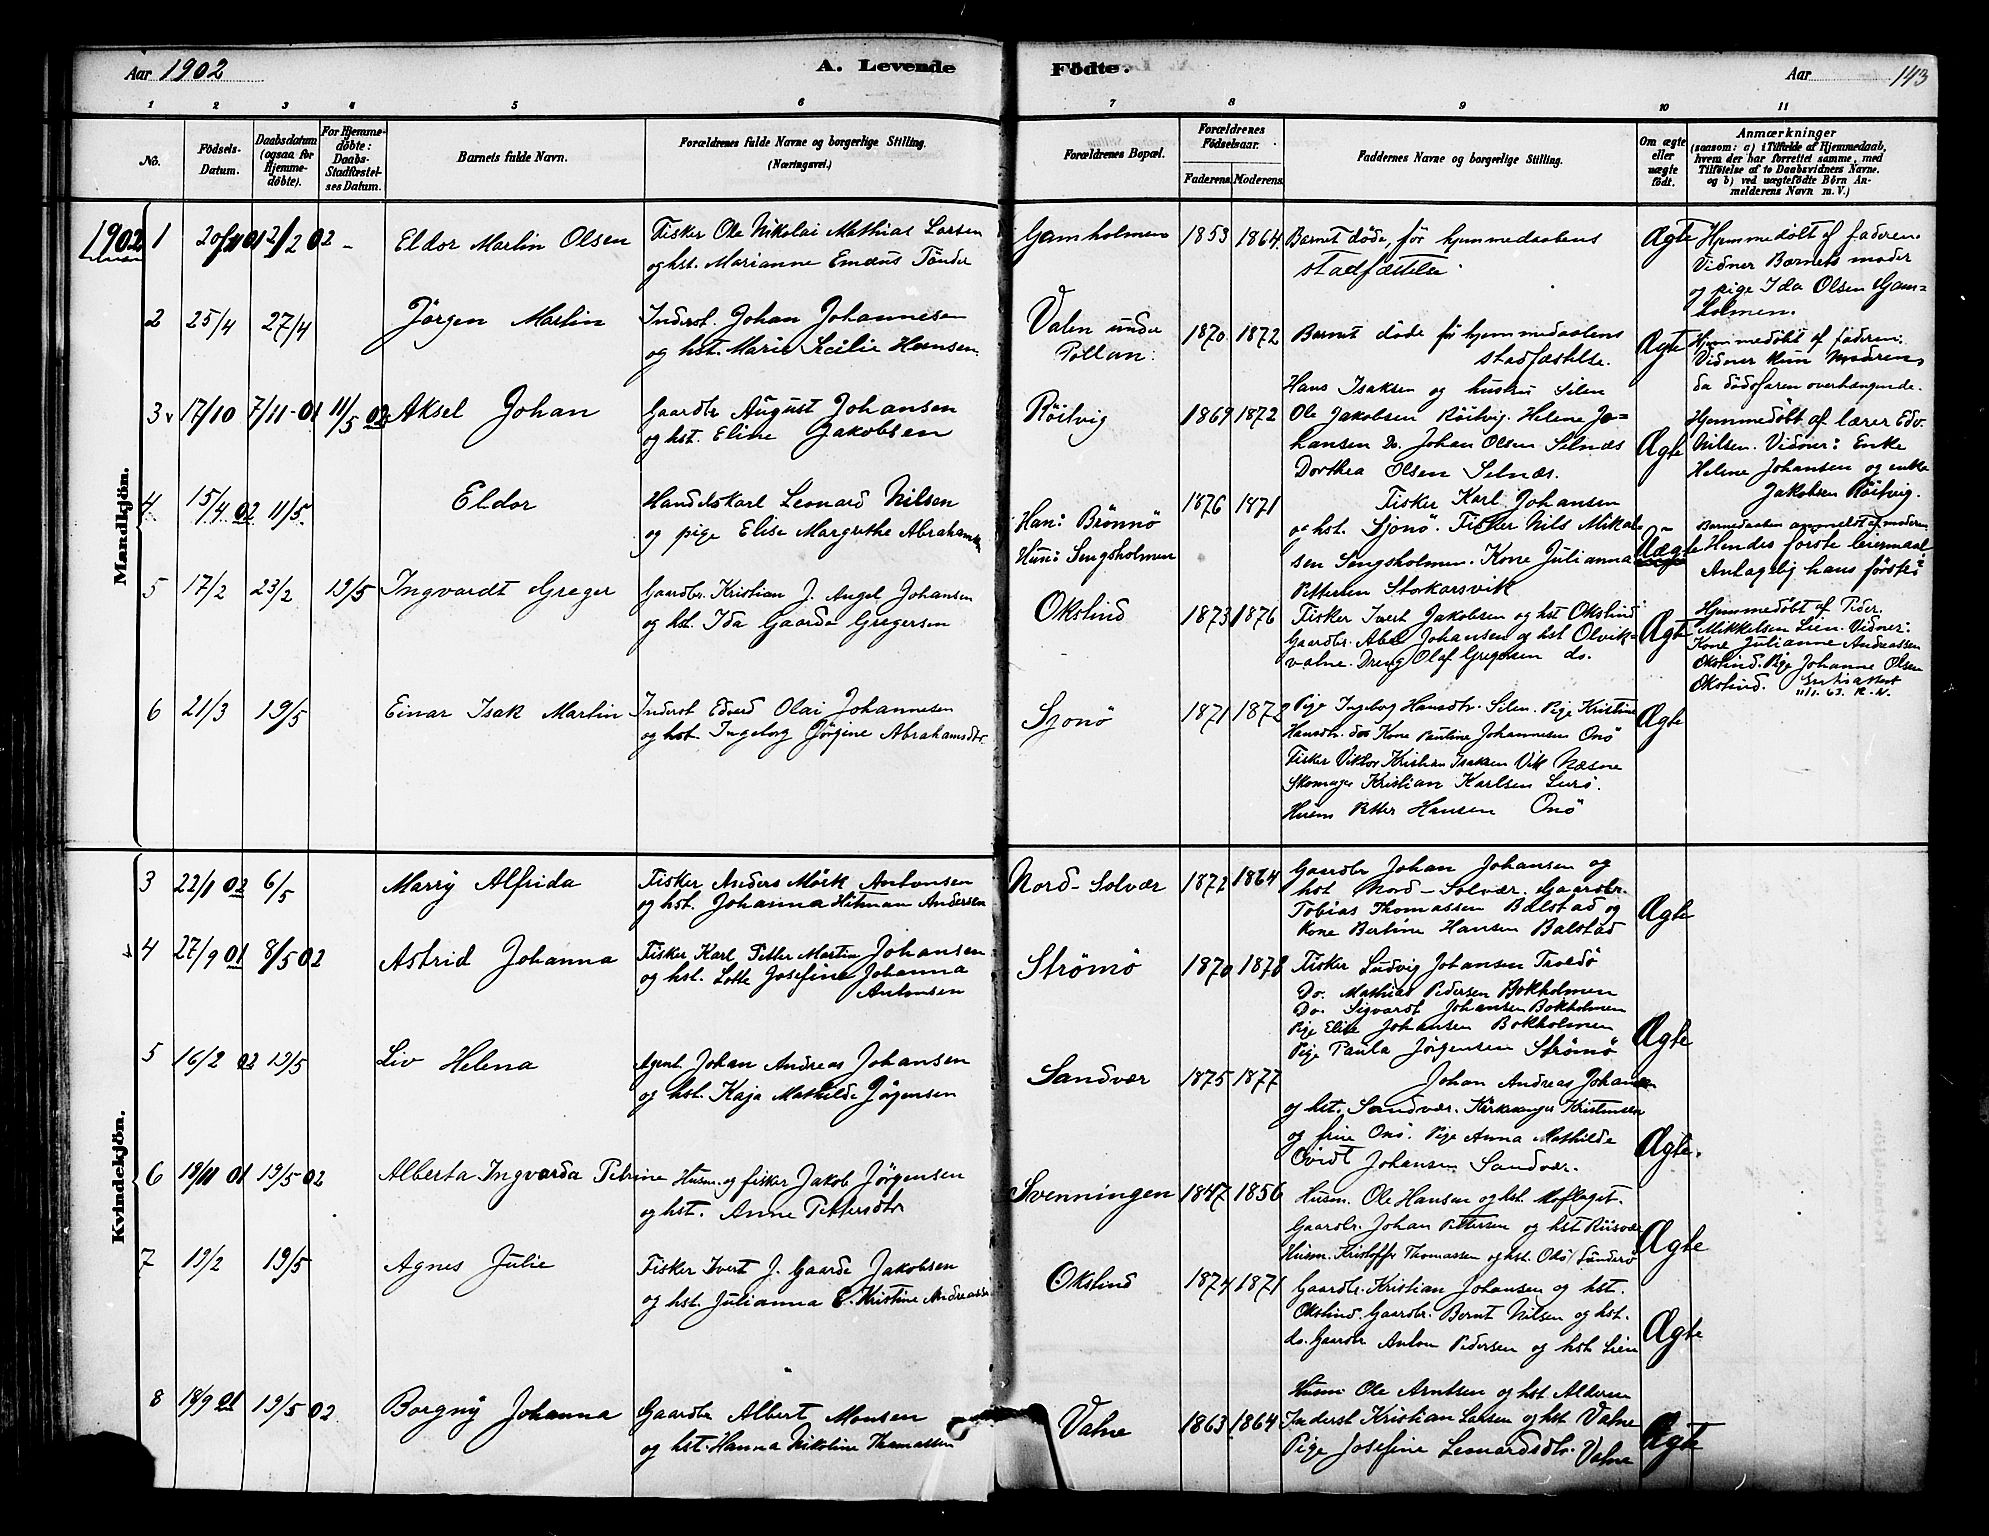 Aar 1902
A. Levende
Födte.
Aar
143
1 2 3 4 5 6 7 8 9 10 11
No.
Födsels-
Datum.
Daabsdatum
(ogsaa for
Hjemme-
döbte).
For Hjemme-
döbte:
Daabs-
Stadfæstel-
ses Datum.
Barnets fulde Navn.
Forældrenes fulde Navne og borgerlige Stilling.
(Næringsvei.)
Forældrenes Bopæl.
Forældrenes
Födselsaar.
Faderens. Moderens.
Faddernes Navne og borgerlige Stilling.
Om ægte
eller
uægte
födt.
Anmærkninger
(saasom: a) i Tilfælde af Hjemmedaab,
hvem der har forrettet samme, med
Tilföielse af to Daabsvidners Navne.
og b) ved uægtefödte Börn An-
melderens Navn m. V.)
Mandkjön.
1902
1 20/11 01 2/2 02 - Eldor Martin Olsen
Fisker Ole Nikolai Mathias Larsen
og hst. Marianne Emæus Tönder
Gamholmen 1853 1864
Barnet döde, för hjemmedaabens
stadfæstelse.
Ægte
Hjemmedöbt af faderen.
Vidner Barnets moder
og pige Ida Olsen Gam-
holmen.
2 25/4 27/4 Jörgen Martin
Inderst. Johan Johannesen
og hst. Marie Secilie Hansen.
Valen under
Pollan.
1870 1872
Barnet döde för hjemmedaabens
stadfæstelse.
Ægte
Hjemmedöbt af faderen.
Vidner kun Moderen,
da dödsfaren overhængende.
3 17/10 7/11-01 11/5 02 Aksel Johan
Gaardbr August Johansen
og hst. Eline Jakobsen
Röitvig 1869 1872
Hans Isaksen og hustru Silen
Ole Jakobsen Röitvig. Helene Jo-
hansen Do. Johan Olsen Selnæs
Dorthea Olsen Selnæs.
Ægte
Hjemmedöbt af lærer Edv.
Nilsen. Vidner: Enke
Helene Johansen og enke
Jakobsen Röitvig.
4 15/4 02 11/5. Eldor
Handelskarl Leonard Nilsen
og pige Elise Margrethe Abrahamsen
Han: Brönnö
Hun: Sengsholmen
1876 1871
Fisker Karl Johansen
og hst. Sjonö. Fisker Nils Mikal-
sen Sengsholmen. Kone Julianna
Pettersen Storkarsvik
Uægte
Barnedaaben anmeldt af moderen
Hendes förste leiermaal
Antagelig hans förste
5 17/2 23/2 19/5 Ingvardt Greger
Gaardbr. Kristian J. Angel Johansen
og hst. Ida Gaarda Gregersen
Okslind 1873 1876
Fisker Ivert Jakobsen og hst Okslind
Gaardbr. Abel Johansen og hst Olvik-
valne. Dreng Olaf Gregersen do.
Ægte
Hjemmedöbt af Peder
Mikkelsen Lien. Vidner:
Kone Julianne Andreassen
Okslind. Pige Johanne Olsen
Okslind.
11/1. 63. K. N.
6 21/3 19/5 Einar Isak Martin
Inderst Edvard Olai Johannesen
og hst. Ingeborg Jörgine Abrahamsdtr.
Sjonö 1871 1872
Pige Ingeborg Hansdtr. Silen. Pige Kristine
Hansdtr. do Kone Pauline Johannesen Onö
Fisker Viktor Kristian Isaksen Vik Næsne
Skomager Kristian Karlsen Lurö.
Husm Petter Hansen Onö
Ægte
Kvindekjön.
3 22/1 02 6/5 Marry Alfrida
Fisker Anders Mörk Antonsen
og hst. Johanna Hitman Andersen
Nord-Solvær 1872 1864
Gaardbr Johan Johansen og
hst Nord-Solvær. Gaardbr.
Tobias Thomassen Balstad og
Kone Bertine Hansen Balstad
Ægte
4 27/9 01 8/5 02 Astrid Johanna
Fisker Karl Petter Martin Johansen
og hst. Lotte Josefine Johanna
Antonsen
Strömö 1870 1878
Fisker Ludvig Johansen Troldö
Do. Mathias Pedersen Bokholmen
Do. Sigvardt Johansen Bokholmen
Pige Elise Johansen Bokholmen
Pige Paula Jörgensen Strömö
Ægte
5 16/2 02 19/5 Liv Helena
Agent Johan Andreas Johansen
og hst. Kaja Mathilde Jörgensen
Sandvær 1875 1877
Johan Andreas Johansen
og hst. Sandvær. Kirkesanger Kristensen
og frue Onö. Pige Anna Mathilde
Johansen Sandvær.
Ægte.
6 19/11 01 19/5 02 Alberta Ingvarda Petrine
Husm. og fisker Jakob Jörgensen
og hst. Anne Pettersdtr
Svenningen 1847 1856
Husm. Ole Hansen og hst. Moflaget.
Gaardbr. Johan Pettersen og hst Riisvær
Husm. Kristoffer Thomassen og hst. Oksö
Ægte
7 19/2 19/5 Agnes Julie
Fisker Ivert J. Gaarde Jakobsen
og hst. Julianna E. Kristine Andreassen
Okslind 1874 1871
Gaardbr. Kristian Johansen og hst.
Okslind. Gaardbr. Bernt Nilsen og hst.
do. Gaardbr Anton Pedersen og hst Lien
Ægte
8 18/9 01 19/5 02 Borgny Johanna
Gaardbr Albert Monsen
og hst. Hanna Nikoline Thomassen
Valne 1863 1864
Husm. Ole Arntsen og hst. Aldersen
Inderst Kristian Larsen og hst Valne
Pige Josefine Leonardsdtr. Valne
Ægte